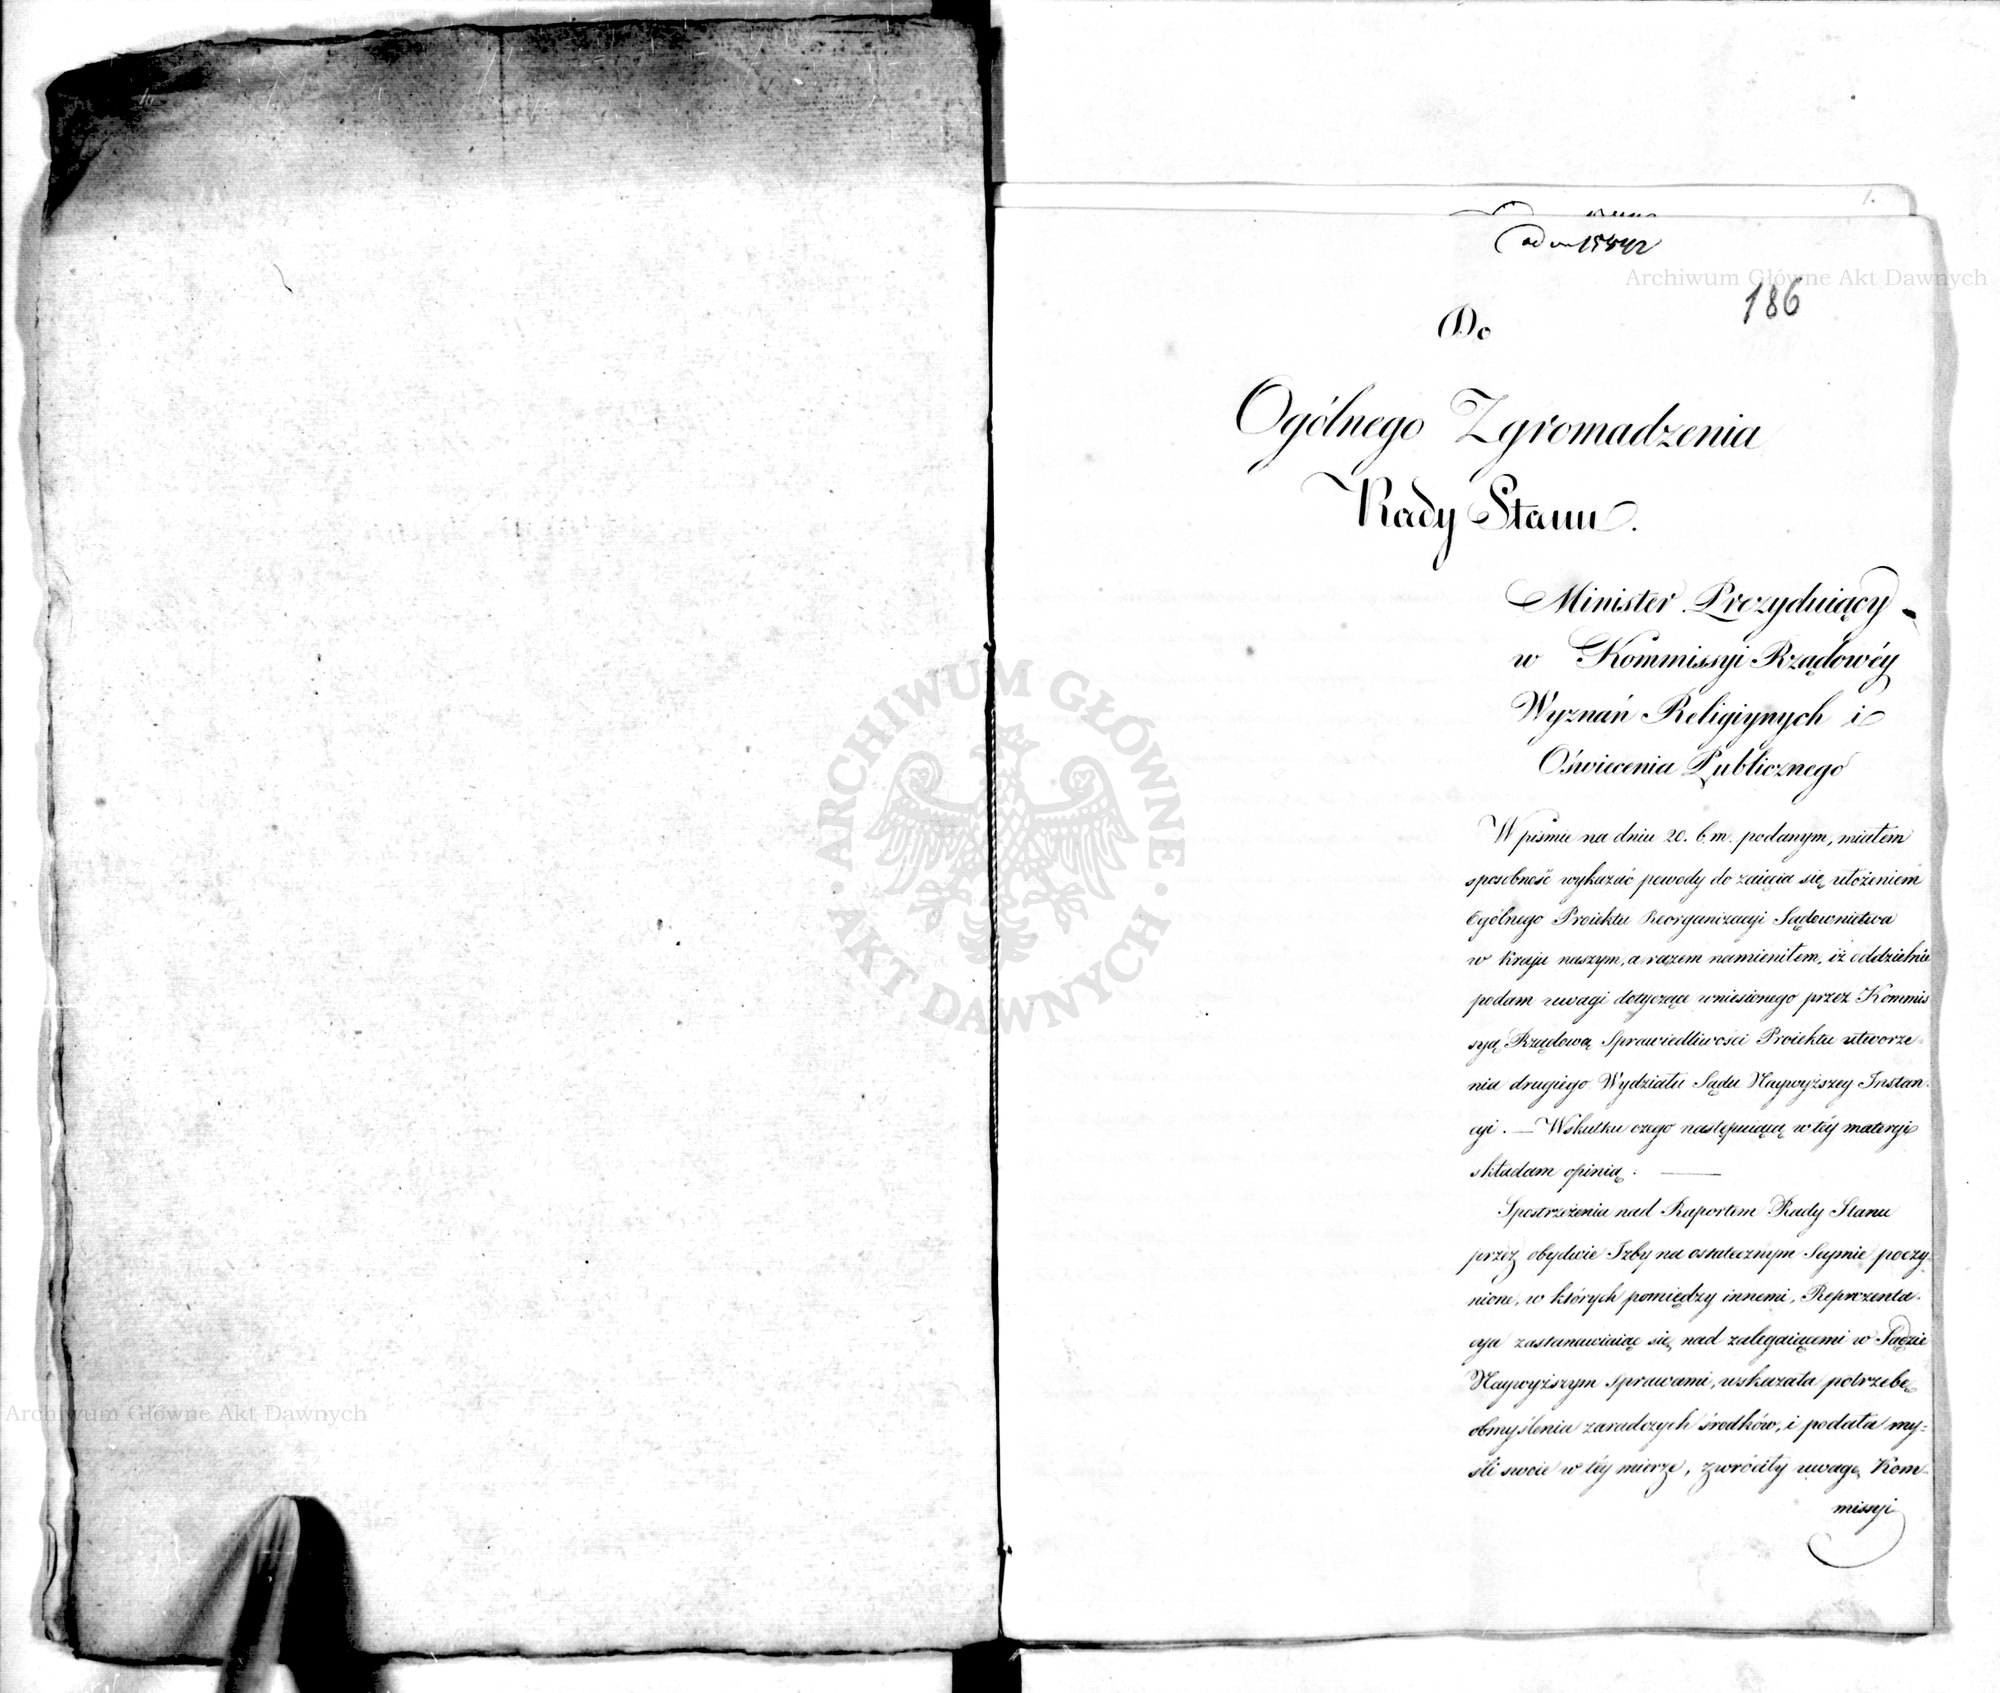 1.
ad No 15542
186
Do
Ogólnego Zgromadzenia
Rady Stanu.
Minister Prezyduiący
w Kommissyi Rządowéy
Wyznań Religiynych i
Oświecenia Publicznego
W piśmie na dniu 20. b.m. podanym, miałem
sposobność wykazać powody do zaięcia się ułożeniem
Ogólnego Proiektu Reorganizacyi Sądownictwa
w kraju naszym, a razem namieniłem, iż oddzielnie
podam uwagi dotyczące wniesionego przez Kommis
syą Rządową Sprawiedliwości Proiektu utworze-
nia drugiego Wydziału Sądu Naywyższey Instan-
cyi. — Wskutku czego następuiącą w téy materyi
składam opinią: —
Spostrzeżenia nad Raportem Rady Stanu
przez obydwie Izby na ostatecznym Seymie poczy-
nione, w których pomiędzy innemi, Reprezenta-
cya zastanawiaiąc się nad zalegaiącemi w Sądzie
Naywyższym sprawami, wskazała potrzebę
obmyślenia zaradczych środków, i podała my-
śli swoie w téy mierze, zwróciły uwagę Kom-
missyi
Archiwum Główne Akt Dawnych
Archiwum Główne Akt Dawnych
ARCHIWUM GŁÓWNE · AKT DAWNYCH ·